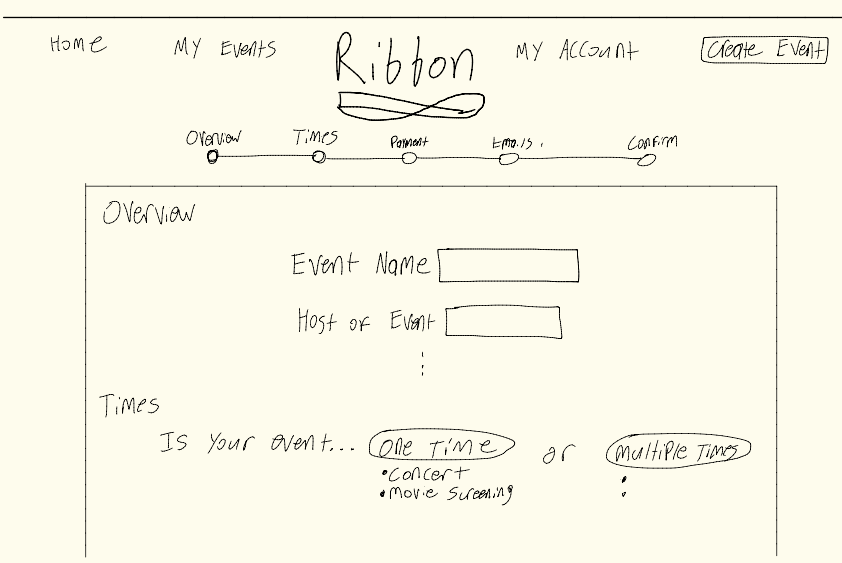 Home My Events Ribbon My Account Create Event
Overview Times Payment Emails Confirm
Overview
Event Name
Host of Event
Times
Is Your event... One Time or Multiple Times
•Concert
•Movie Screening